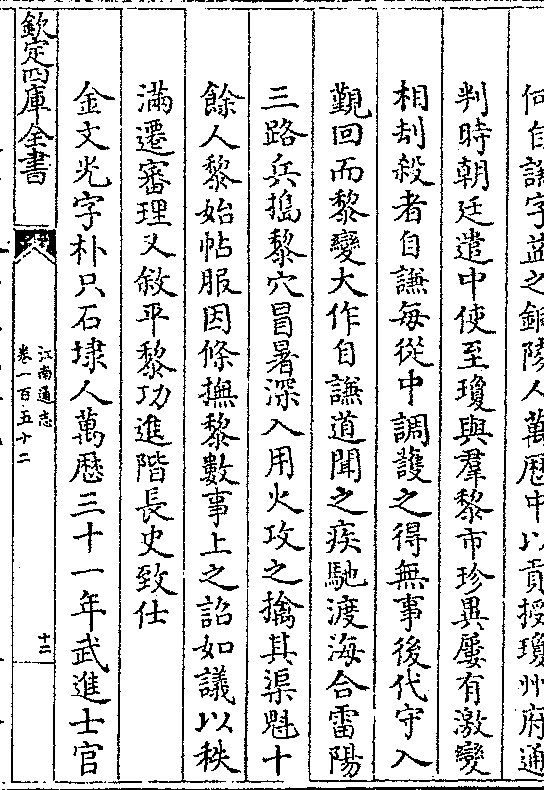 何自謙字益之銅陵人萬歷中以貢授瓊州府通
判時朝廷遣中使至瓊與羣黎市珍異屢有激變
相刦殺者自謙每從中調護之得無事後代守入
覲回而黎變大作自謙道聞之疾馳渡海合雷陽
三路兵搗黎穴冒暑深入用火攻之擒其渠魁十
餘人黎始帖服因條撫黎數事上之詔如議以秩
滿遷審理又敘平黎功進階長史致仕
金文光字朴只石埭人萬歷三十一年武進士官
欽定四庫全書
江南通志
卷一百五十二
十二